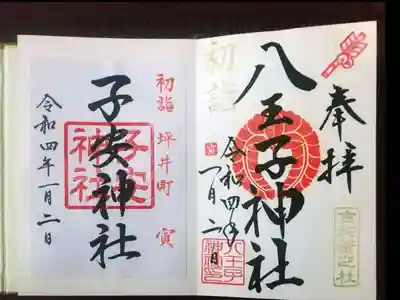 奉拝
八王子神社
初詣
令和四年
一月二日
八王子
神社
初詣 坪井町 寅
子安神社
子安
神社
令和四年一月二日